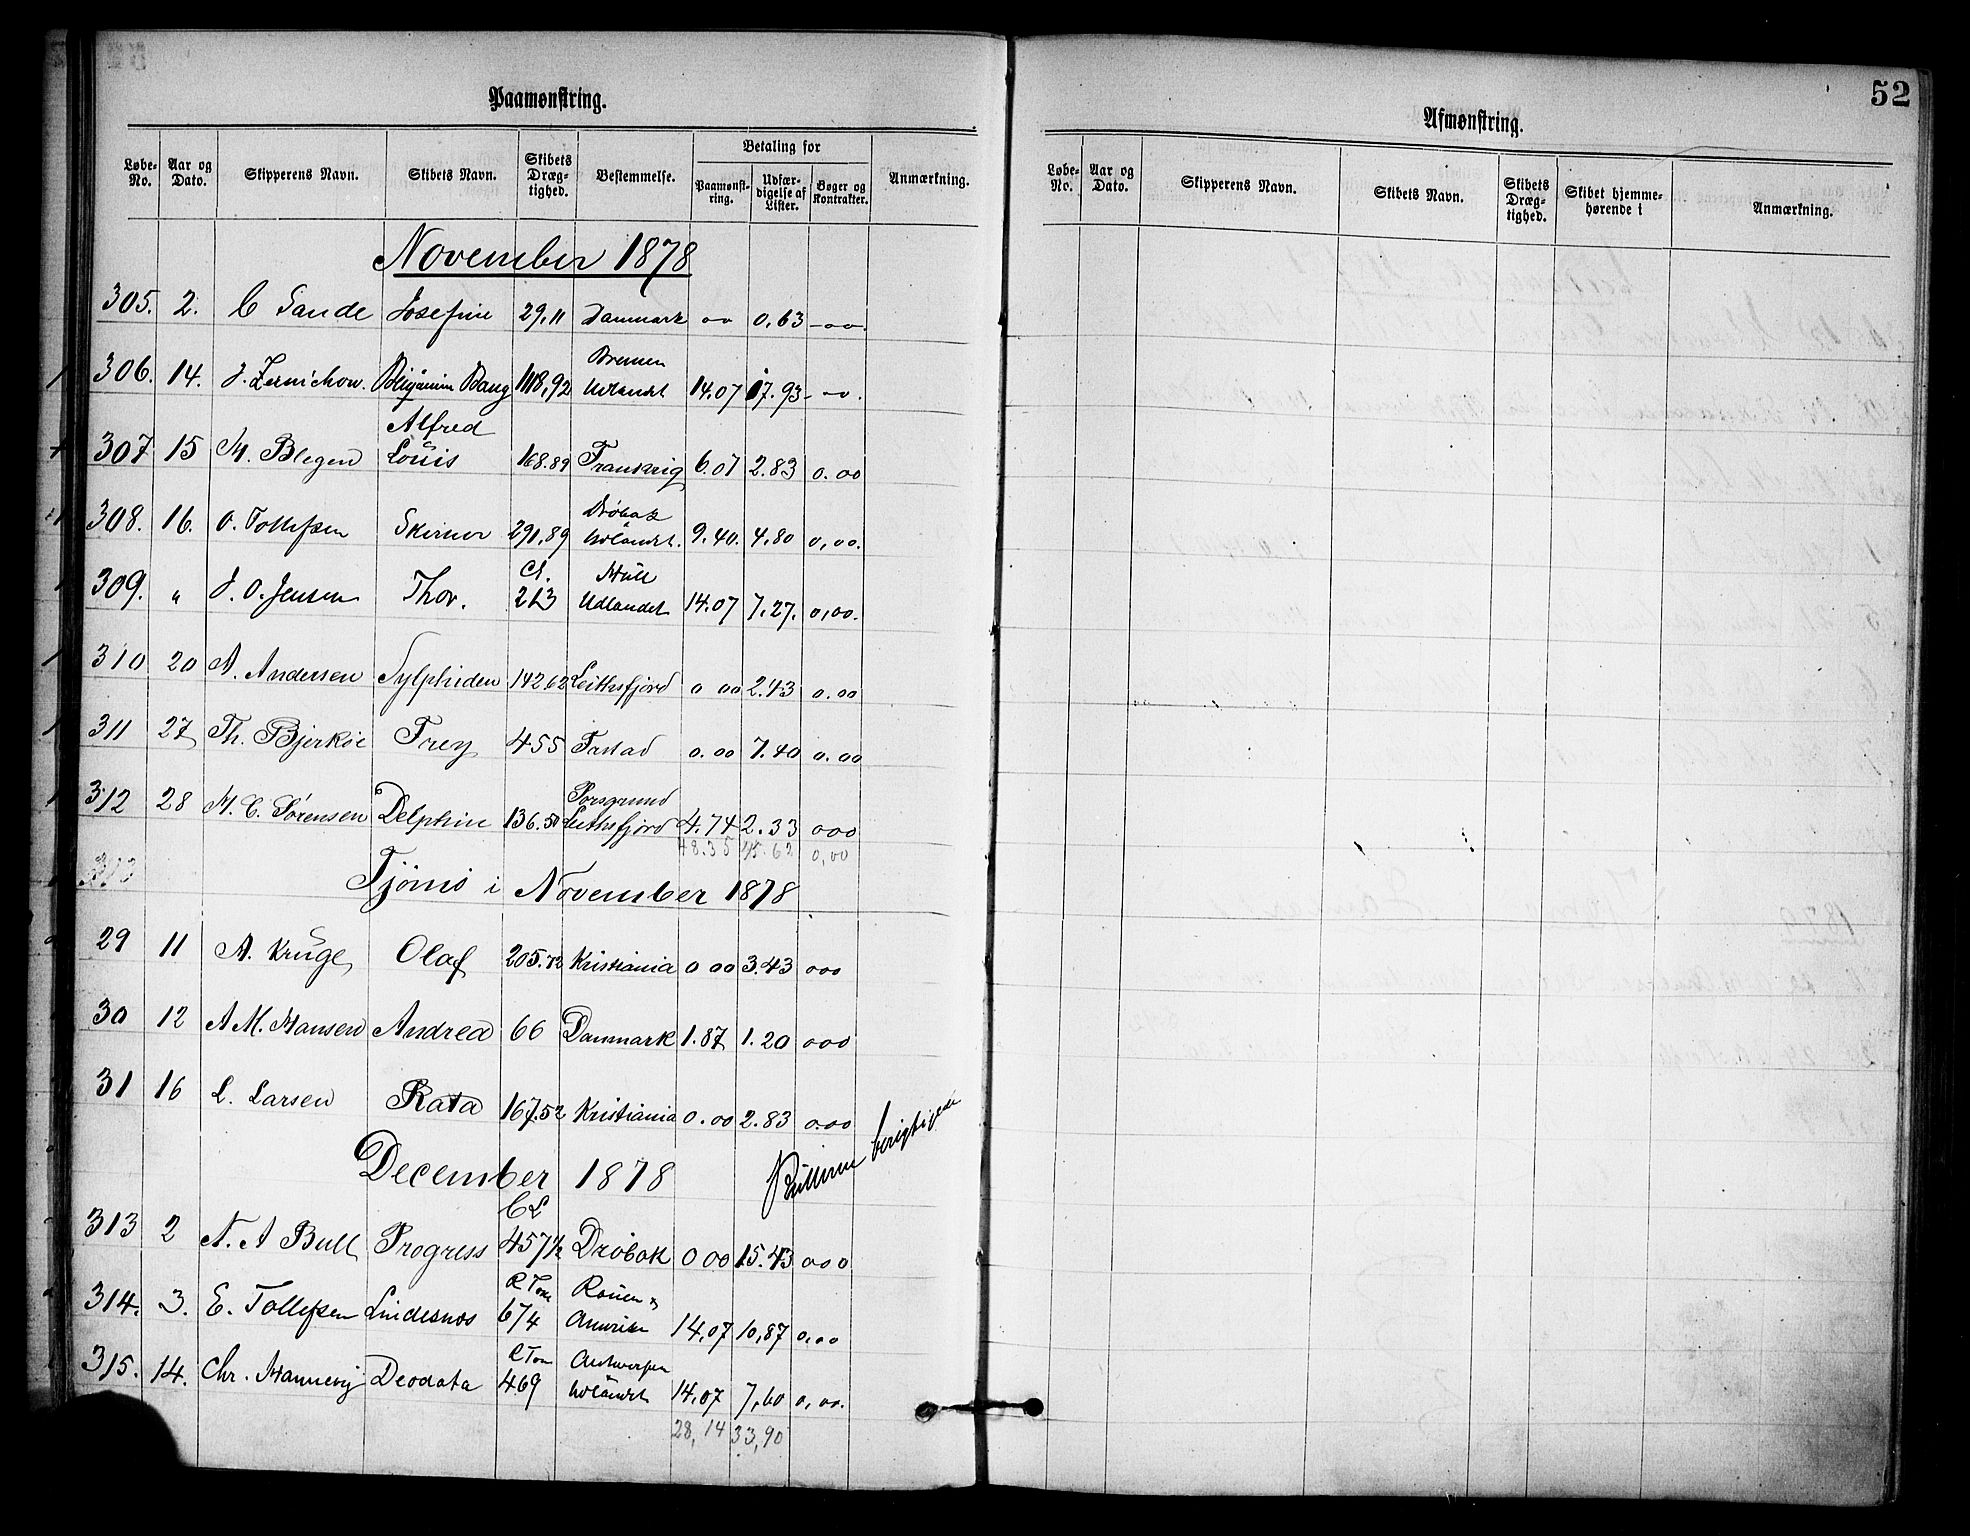 52
Paamønstring.
Løbe-No. Aar og Dato. Skipperens Navn. Skibets Navn. Skibets Dræg-tighed. Bestemmelse. Betaling for Paamønst-ring. Udfær-digelse af Lister. Bøger og Kontrakter. Anmærkning.
November 1878
305. 2. C Sande Josefine 29,11 Danmark 00 0,63 00.
Bremen
306. 14. J. Zernichow. Benjamin Bang 1118,92 Udlandet 14.07 17.93 00.
Alfred
307 15 M. Blegen Louis 168.89 Frankrig 6.07 2.83 0.00
Drøbak
308. 16. O. Tollefsen Skirner 291,89 Udlandet. 9.40. 4,80 0,00.
Cl. Hull
309. " J. O. Jensen Thor. 213 Udlandet 14.07 7,27. 0,00.
310 20 A. Andersen Sylphiden 142,62 Leithsfjord 0 00 2.43 0.00
311 27 Th. Bjerköe Frey 455 0.00 7.40 0.00
Porsgrund
312 28 M. C. Sørensen Delphin 136.50 Leithsfjord 4.74 2.33 000
48.35 45.62 0,00
313
Tjømö i November 1878
29 11 A. Kruge Olaf 205.72 Kristiania 0 00 3.43 000
30 12 A M. Hansen Andrea 66 Danmark 1.87 1.20 000
31 16 L. Larsen Rata 167.52 Kristiania 0.00 2.83 0.00
December 1878
berigtigede
CL
313 2 N. A Bull Progress 457½ Drøbak 0 00 15.43 000
R Ton Rouen &
314. 3. E. Tollefsen Lindesnæs 674 Amerika 14,07 10,87 0,00
R Ton Antwerpen
315. 14. Chr. Mannevig Deodata 469 Udlandet 14,07 7,60 0,00.
28,14 33,90
Afmønstring.
Løbe-No. Aar og Dato. Skipperens Navn. Skibets Navn. Skibets Dræg-tighed. Skibet hjemme-hørende i Anmærkning.